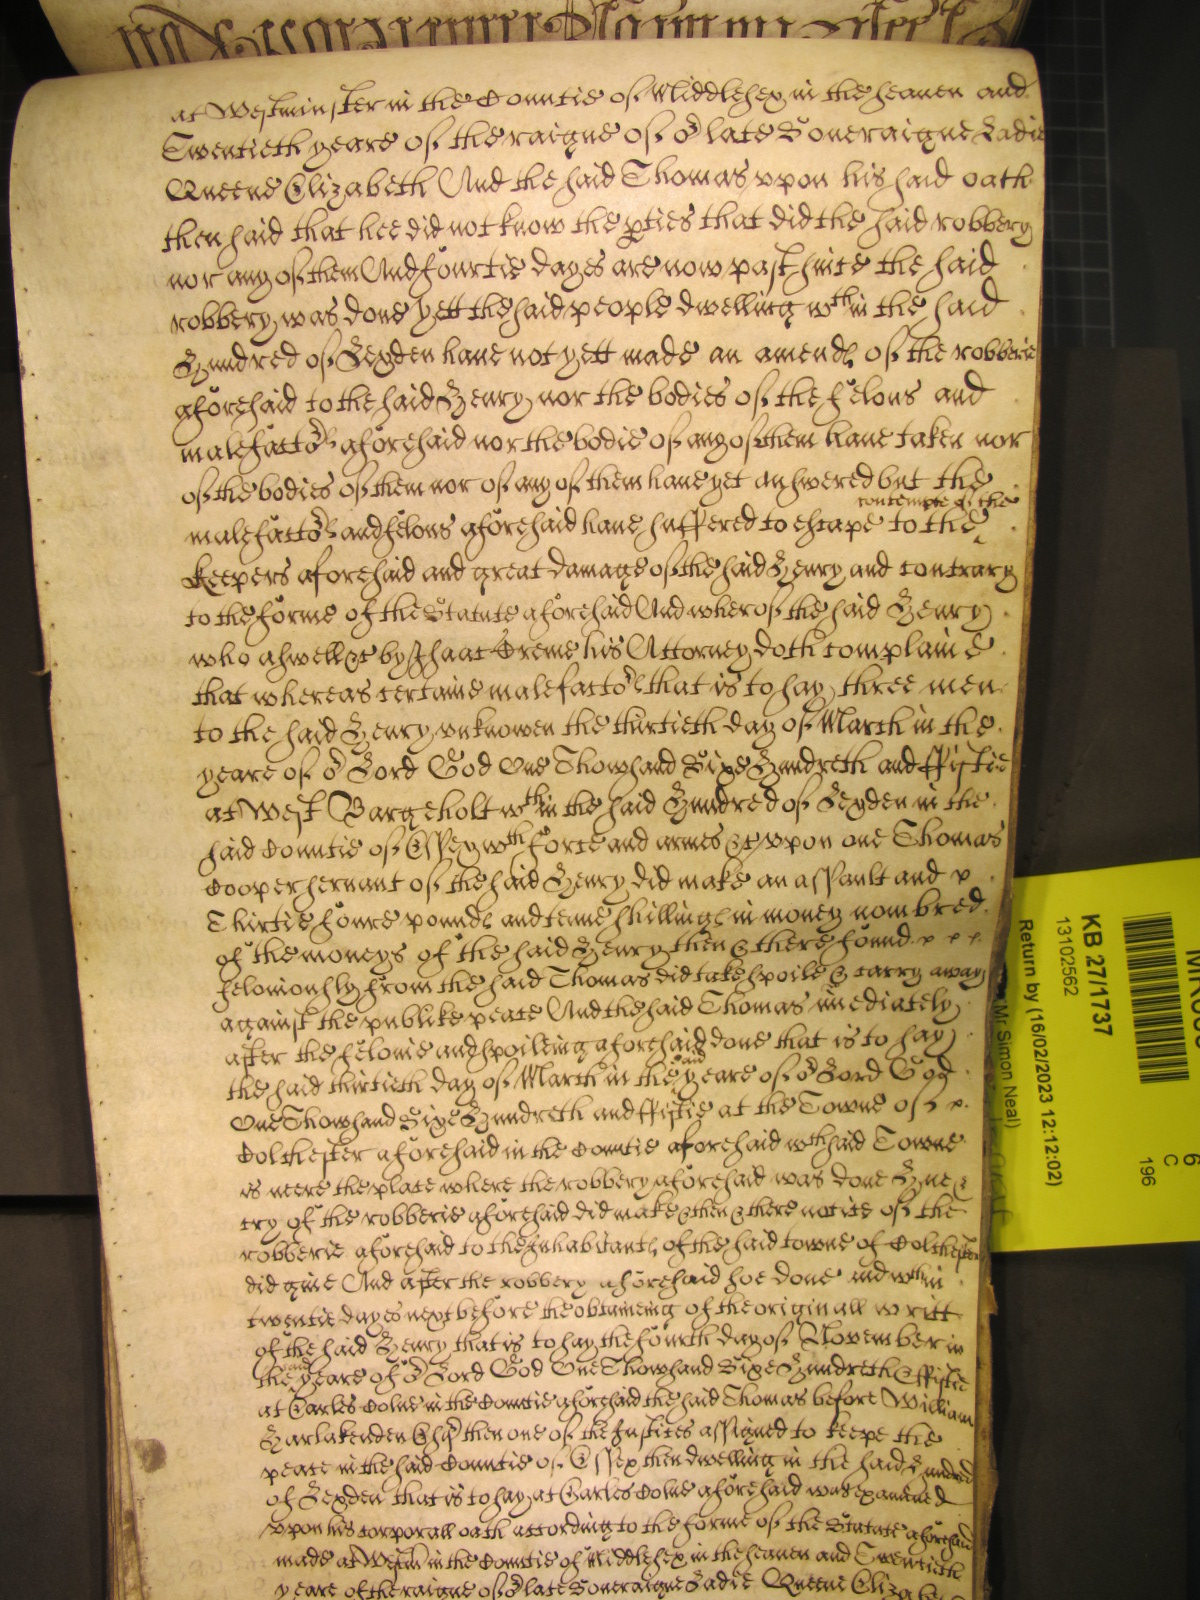 at Westminster in the Countie of Middlesex in the seaven and
Twentieth yeare of the raigne of or late Soveraigne Ladie
Queene Elizabeth And the said Thomas vpon his said oath
then said that hee did not know the pties that did the said robbery
nor any of them And fourtie dayes are now past since the said
robbery was done yett the said people dwelling wthin the said
Hundred of Lexden have not yett made an amends of the robberie
aforesaid to the said Henry nor the bodies of the felons and
malefactors aforesaid nor the bodie of any of them have taken nor
of the bodies of them nor of any of them have yet answered but the
contempte of the
malefactors and felons aforesaid have suffered to escape to the
keepers aforesaid and great damage of the said Henry and contrary
to the forme of the Statute aforesaid And wherof the said Henry
who aswell &c by Isaac Creme his Attorney doth complaine
that whereas certaine malefactors that is to say three men
to the said Henry vnknowen the thirtieth day of March in the
yeare of or Lord God One Thowsand Sixe Hundreth and ffiftie
at West Bargeholt wthin the said Hundred of Lexden in the
said Countie of Essex wth force and armes &c vpon one Thomas
Cooper servant of the said Henry did make an assault and
Thirtie foure pounds and tenne shillings in money nombred
of the moneys of the said Henry then & there found
feloniously from the said Thomas did take spoile & carry away
against the publike peace And the said Thomas imediately
after the felonie and spoileing aforesaid done that is to say
said
the said thirtieth day of March in the yeare of or Lord God
One Thowsand Sixe Hundreth and ffiftie at the Towne of
Colchester aforesaid in the Countie aforesaid wch said Towne
is neere the place where the robbery aforesaid was done Hue &
cry of the robberie aforesaid did make & then & there notice of the
robberie aforesaid to the Inhabitants of the said towne of Colchester
did give And after the robbery aforesaid soe done and wthin
twentie dayes next before the obtaineing of the originall writt
of the said Henry that is to say the fourth day of November in
said
the yeare of or Lord God One Thowsand Sixe Hundreth & ffiftie
at Earles Colne in the Countie aforesaid the said Thomas before William
Harlakenden Esqr then one of the Justices assigned to keepe the
peace in the said Countie of Essex then dwelling in the said Hundred
of Lexden that is to say at Earles Colne aforesaid was examined
vpon his corporall oath according to the forme of the Statute aforesaid
made at Westmr in the Countie of Middlesex in the seaven and Twentieth
yeare of the raigne of or late Soveraigne Ladie Queene Elizabeth
KB 27/1737
13102562
Return by (16/02/2023 12:12:02)
(Mr Simon Neal)
6
C
196